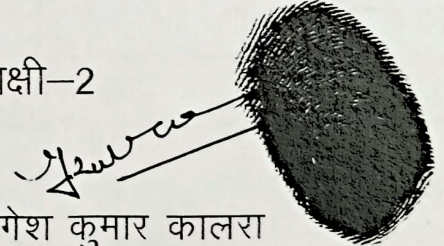 क्षी–2
गेश कुमार कालरा